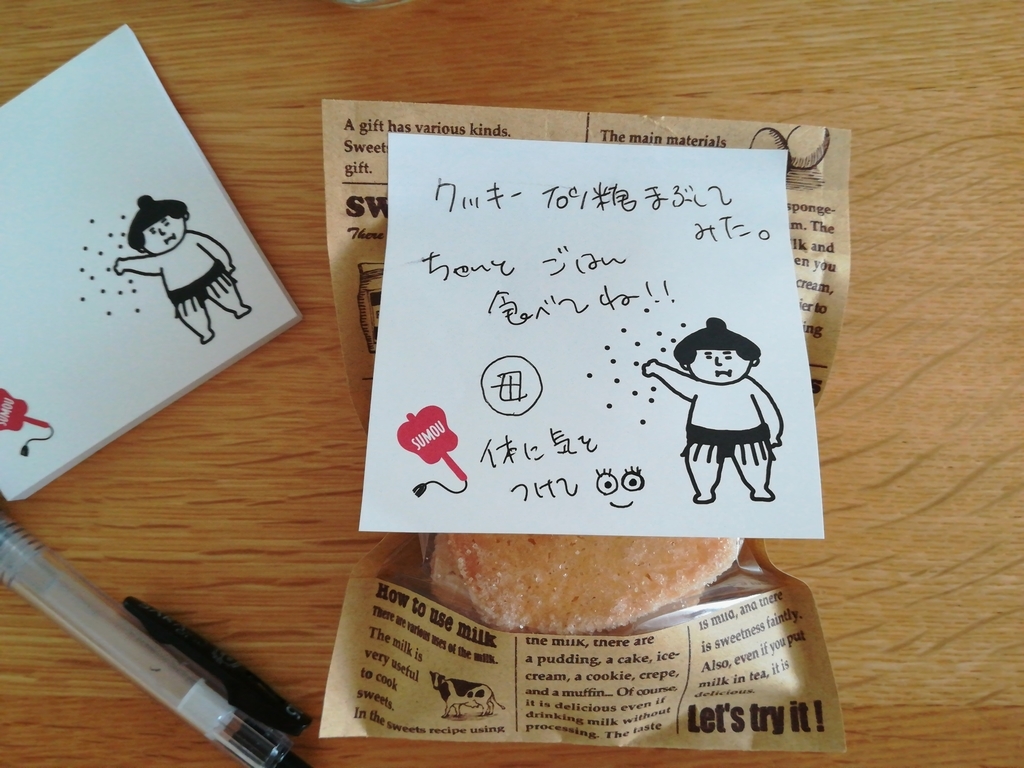 A gift has various kinds.
Sweet
gift.
The main materials
SW
There
sponge-
m. The
lk and
en you
cream,
ier to
ing
クッキー 砂糖まぶして
みた。
ちゃんと ごはん
食べてね!!
母
体に気を
つけて
SUMOU
SUMOU
How to use milk
There are various uses of the milk.
The milk is
very useful
to cook
sweets.
In the sweets recipe using
the milk, there are
a pudding, a cake, ice-
cream, a cookie, crepe,
and a muffin... Of course,
it is delicious even if
drinking milk without
processing. The taste
is mild, and there
is sweetness faintly.
Also, even if you put
milk in tea, it is
delicious.
Let's try it !